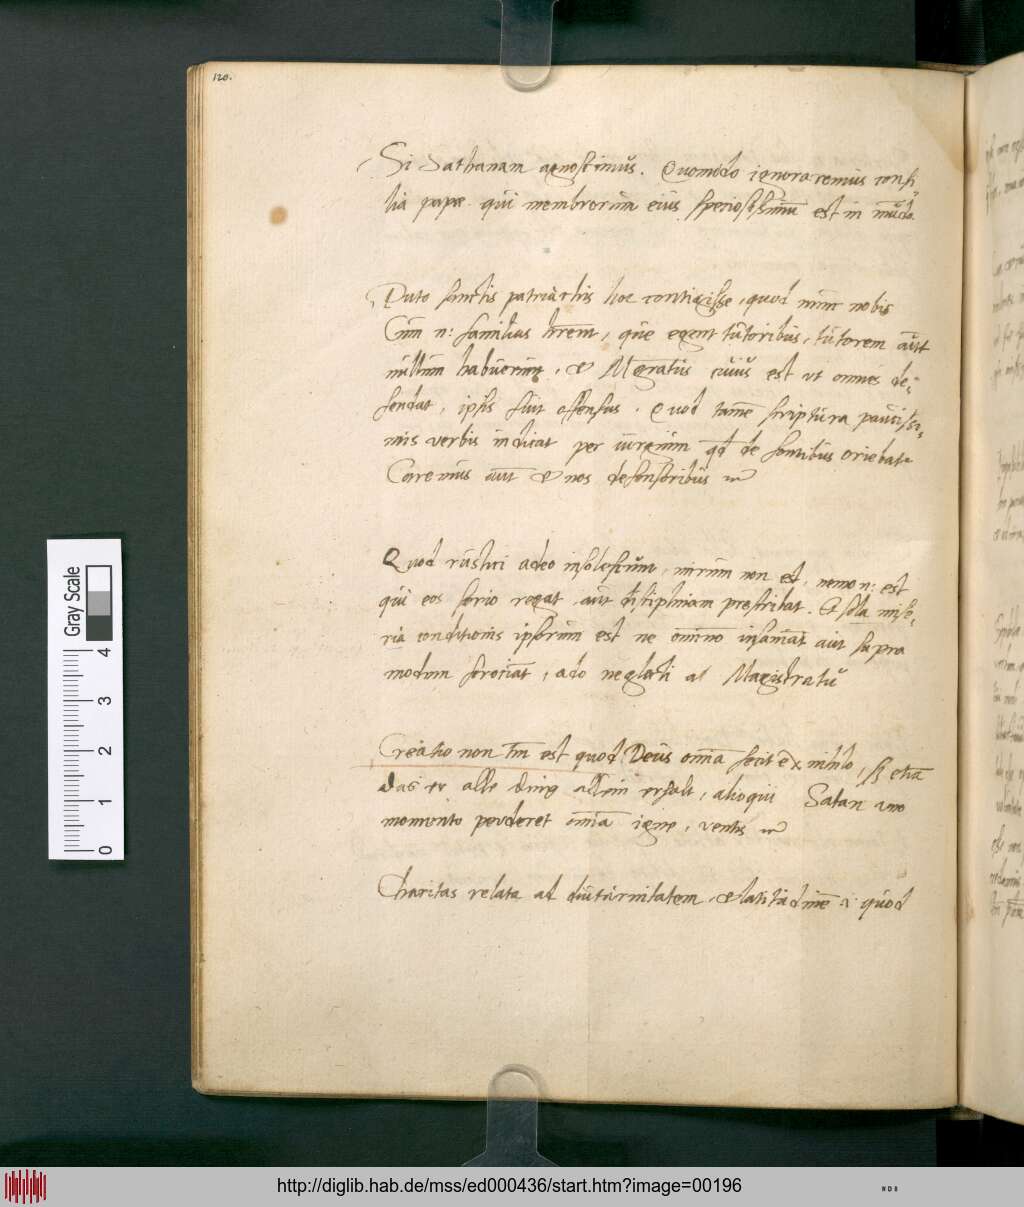 120.
Si Sathanam agnoscimus. Quomodo ignoraremus consi
lia papae qui membrorum eius speciosissimū est in mūdo.
Puto sanctis patriarchis hoc contigisse, quod nunc nobis
Cum n: familias hrēm, que egent tutoribus, tutorem autē
nullum habuerint, et Mgratus cuius est ut omnes de:
fendat, ipsis fuit offensus. Quod tamē scriptura paucissi:
mis verbis indicat per iurgium qd de fontibus oriebat
Caremus aut et nos defensoribus
Quod rustici adeo insolescunt, mirum non est, nemo n: est
qui eos serio regat aut disciplinam prescribat. Et sola mise:
ria conditionis ipsorum est ne omnino insaniāt aut supra
modum ferociāt, adeo neglecti a Magistratu
Creatio non tm est quod Deus omnia fecit ex nihilo, sz etiā
das er alle ding allein erhalt, alioqui Satan uno
momento perderet omnia igne, ventis
Charitas relata ad diuturnitatem, et latitudinē quod
Gray Scale
4
3
2
1
0
http://diglib.hab.de/mss/ed000436/start.htm?image=00196